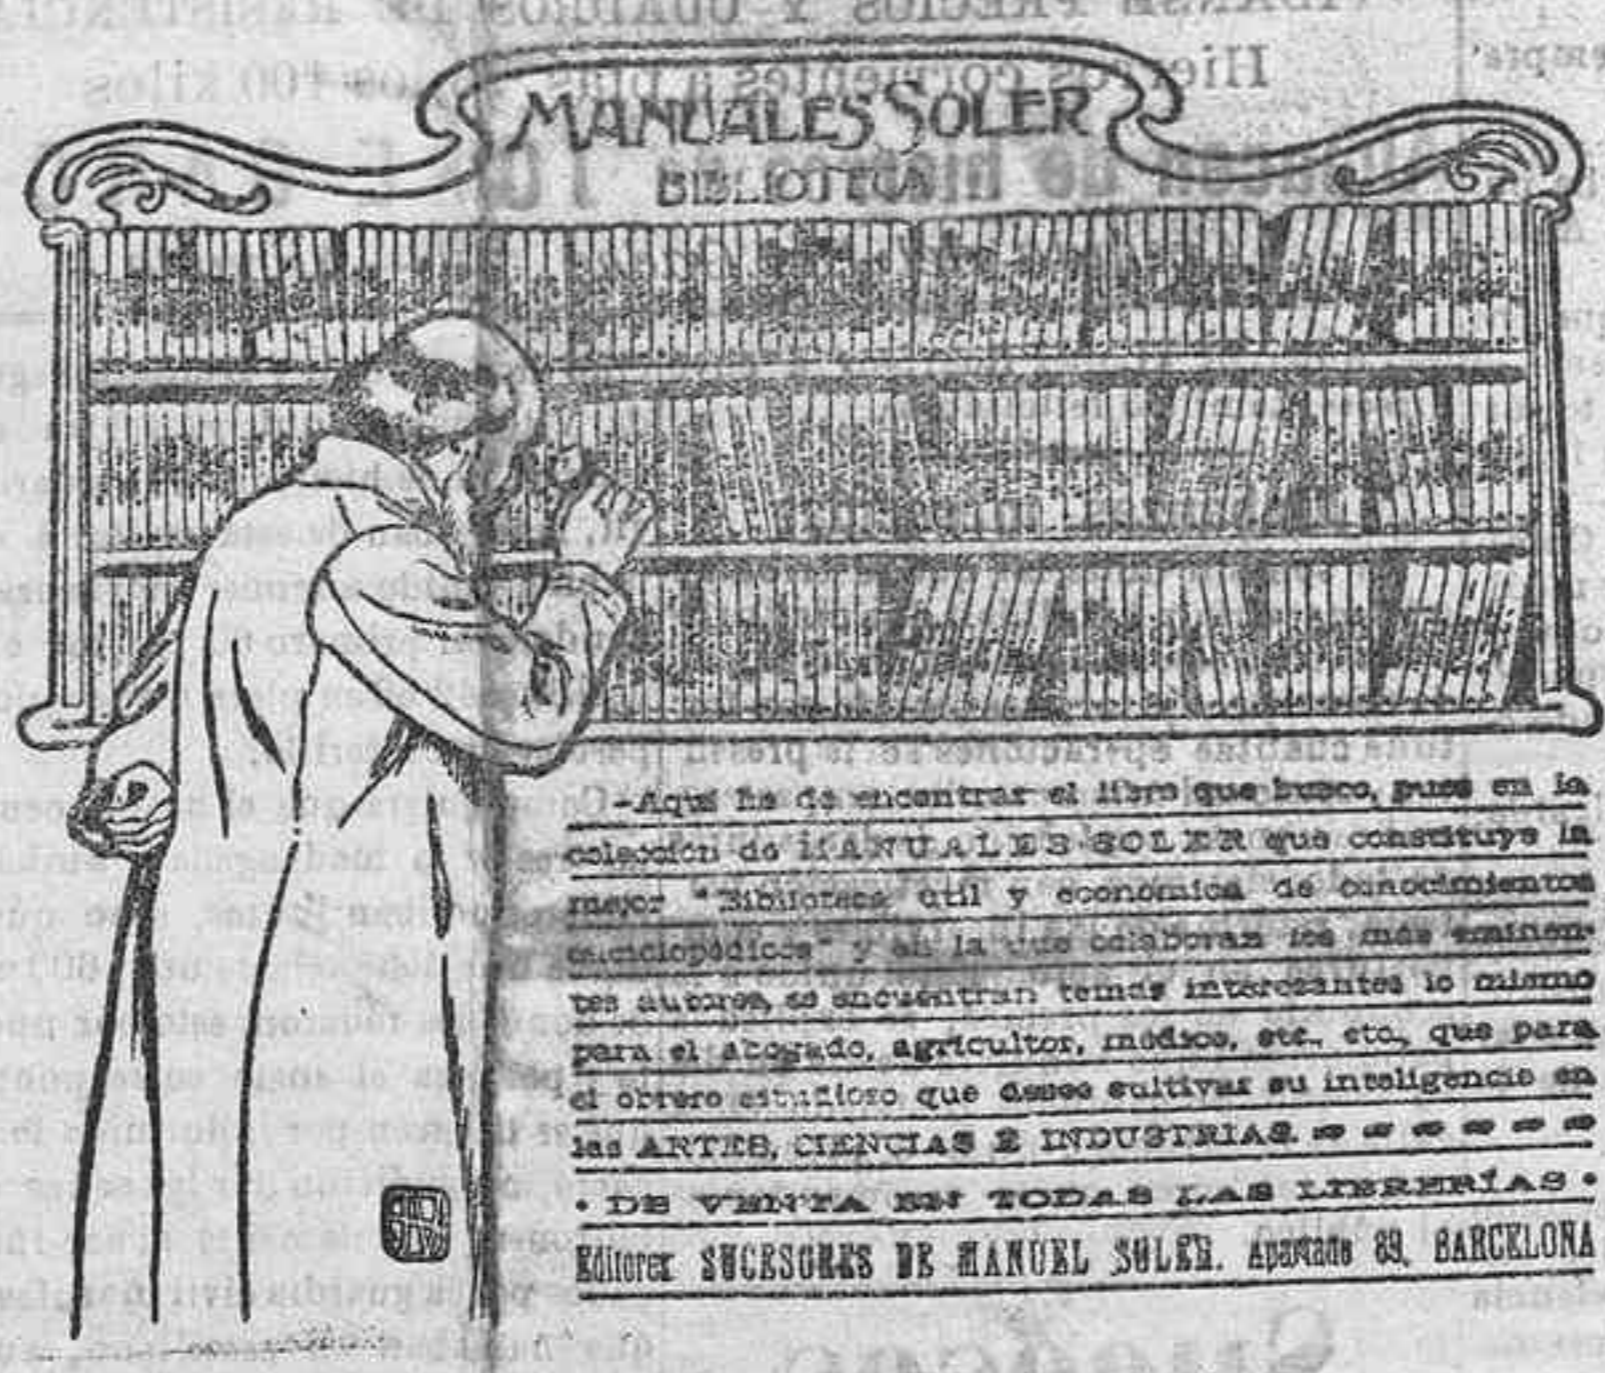 MANUALES SOLER
BIBLIOTECA
-Aquí he de encontrar el libro que busco, pues en la
colección de MANUALES SOLER que constituye la
mayor "Biblioteca útil y económica de conocimientos
enciclopédicos" y en la que colaboran los más eminen-
tes autores, se encuentran temas interesantes lo mismo
para el abogado, agricultor, médico, etc., etc., que para
el obrero estudioso que desee cultivar su inteligencia en
las ARTES, CIENCIAS E INDUSTRIAS.
• DE VENTA EN TODAS LAS LIBRERÍAS •
Editores: SUCESORES DE MANUEL SOLER. Apartado 89, BARCELONA